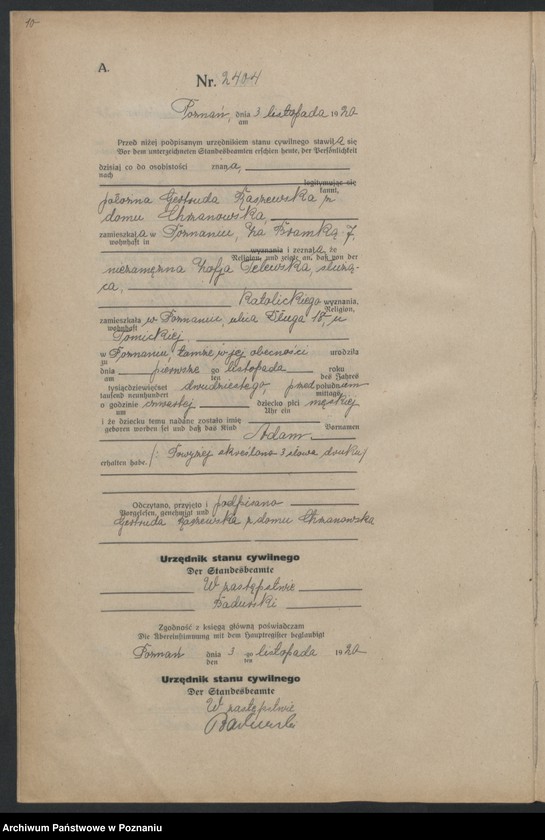 10
A.
Nr. 2404
Poznań, dnia 3 listopada 1920
am
Przed niżej podpisanym urzędnikiem stanu cywilnego stawiła się
Vor dem unterzeichneten Standesbeamten erschien heute, der Persönlichkeit
dzisiaj co do osobistości znana,
nach
legitymując się
kannt,
położna Gertruda Kaszewska z
domu Chrzanowska,
zamieszkała w Poznaniu, Za Bramką 7,
wohnhaft in
wyznania i zeznała, że
Religion, und zeigte an, daß von der
niezamężna Zofja Telewska, służą-
ca,
katolickiego wyznania,
Religion,
zamieszkała w Poznaniu, ulica Długa 18, u
wohnhaft
Tomickiej
w Poznaniu, tamże w jej obecności urodziła
zu
dnia pierwszego listopada roku
am ten des Jahres
tysiącdziewięćset dwudziestego, przed południem
tausend neunhundert mittags
o godzinie czwartej dziecko płci męskiej
um Uhr ein
i że dziecku temu nadane zostało imię
geboren worden sei und daß das Kind Vornamen
Adam
erhalten habe. /: Powyżej skreślono 3 słowa druku/
Odczytano, przyjęto i podpisano
Vorgelesen, genehmigt und
Gertruda Kaszewska z domu Chrzanowska
Urzędnik stanu cywilnego
Der Standesbeamte
W zastępstwie
Zgodność z księgą główną poświadczam
Die Übereinstimmung mit dem Hauptregister beglaubigt
Poznań dnia 3 go listopada 1920
den ten
Urzędnik stanu cywilnego
Der Standesbeamte
W zastępstwie
Archiwum Państwowe w Poznaniu